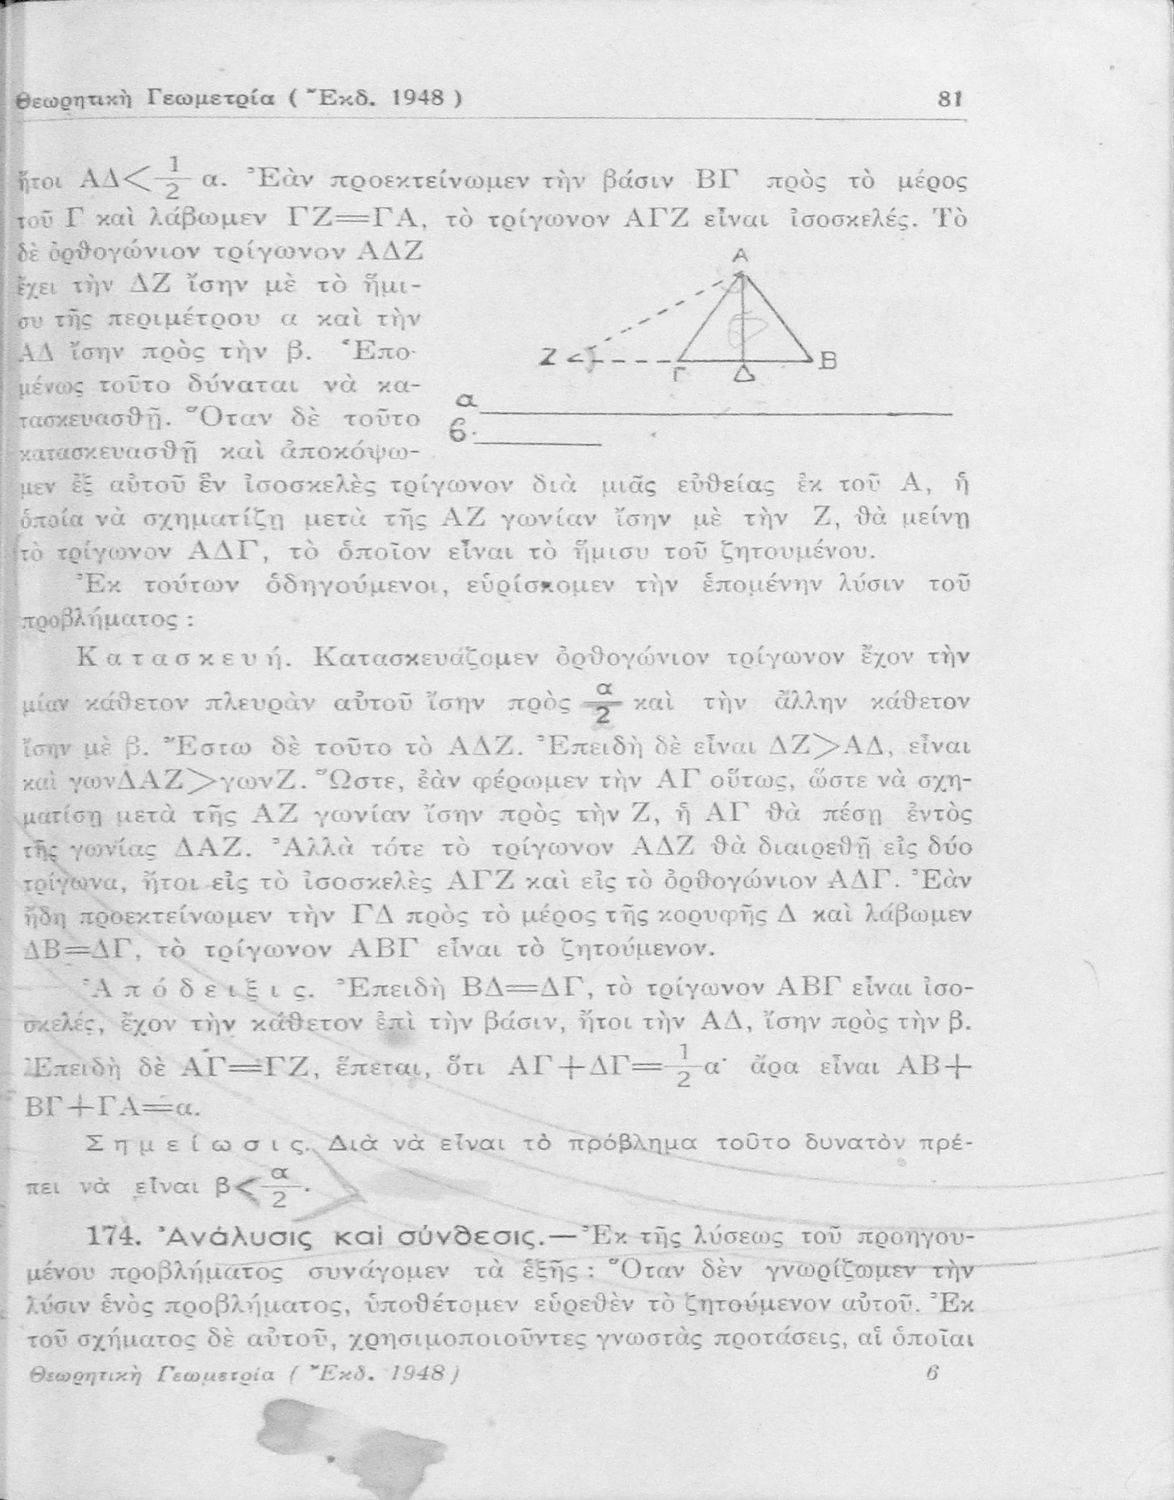 Θεωρητικὴ Γεωμετρία ( Ἔκδ. 1948 ) 81
ἤτοι ΑΔ< 1/2 α. Ἐὰν προεκτείνωμεν τὴν βάσιν ΒΓ πρὸς τὸ μέρος
τοῦ Γ καὶ λάβωμεν ΓΖ=ΓΑ, τὸ τρίγωνον ΑΓΖ εἶναι ἰσοσκελές. Τὸ
δὲ ὀρθογώνιον τρίγωνον ΑΔΖ
ἔχει τὴν ΔΖ ἴσην μὲ τὸ ἥμι-
συ τῆς περιμέτρου α καὶ τὴν
ΑΔ ἴσην πρὸς τὴν β. Ἑπο-
μένως τοῦτο δύναται νὰ κα-
τασκευασθῇ. Ὅταν δὲ τοῦτο
κατασκευασθῇ καὶ ἀποκόψω-
Α
Ζ
Γ
Δ
Β
α
β
μεν ἐξ αὐτοῦ ἓν ἰσοσκελὲς τρίγωνον διὰ μιᾶς εὐθείας ἐκ τοῦ Α, ἡ
ὁποία νὰ σχηματίζῃ μετὰ τῆς ΑΖ γωνίαν ἴσην μὲ τὴν Ζ, θὰ μείνῃ
τὸ τρίγωνον ΑΔΓ, τὸ ὁποῖον εἶναι τὸ ἥμισυ τοῦ ζητουμένου.
Ἐκ τούτων ὁδηγούμενοι, εὑρίσκομεν τὴν ἑπομένην λύσιν τοῦ
προβλήματος :
Κατασκευή. Κατασκευάζομεν ὀρθογώνιον τρίγωνον ἔχον τὴν
μίαν κάθετον πλευρὰν αὐτοῦ ἴσην πρὸς α/2 καὶ τὴν ἄλλην κάθετον
ἴσην μὲ β. Ἔστω δὲ τοῦτο τὸ ΑΔΖ. Ἐπειδὴ δὲ εἶναι ΔΖ>ΑΔ, εἶναι
καὶ γωνΔΑΖ>γωνΖ. Ὥστε, ἐὰν φέρωμεν τὴν ΑΓ οὕτως, ὥστε νὰ σχη-
ματίσῃ μετὰ τῆς ΑΖ γωνίαν ἴσην πρὸς τὴν Ζ, ἡ ΑΓ θὰ πέσῃ ἐντὸς
τῆς γωνίας ΔΑΖ. Ἀλλὰ τότε τὸ τρίγωνον ΑΔΖ θὰ διαιρεθῇ εἰς δύο
τρίγωνα, ἤτοι εἰς τὸ ἰσοσκελὲς ΑΓΖ καὶ εἰς τὸ ὀρθογώνιον ΑΔΓ. Ἐὰν
ἤδη προεκτείνωμεν τὴν ΓΔ πρὸς τὸ μέρος τῆς κορυφῆς Δ καὶ λάβωμεν
ΔΒ=ΔΓ, τὸ τρίγωνον ΑΒΓ εἶναι τὸ ζητούμενον.
Ἀπόδειξις. Ἐπειδὴ ΒΔ=ΔΓ, τὸ τρίγωνον ΑΒΓ εἶναι ἰσο-
σκελές, ἔχον τὴν κάθετον ἐπὶ τὴν βάσιν, ἤτοι τὴν ΑΔ, ἴσην πρὸς τὴν β.
Ἐπειδὴ δὲ ΑΓ=ΓΖ, ἕπεται, ὅτι ΑΓ+ΔΓ= 1/2 α· ἄρα εἶναι ΑΒ+
ΒΓ+ΓΑ=α.
Σημείωσις. Διὰ νὰ εἶναι τὸ πρόβλημα τοῦτο δυνατὸν πρέ-
πει νὰ εἶναι β< α/2 .
174. Ἀνάλυσις καὶ σύνθεσις.—Ἐκ τῆς λύσεως τοῦ προηγου-
μένου προβλήματος συνάγομεν τὰ ἑξῆς : Ὅταν δὲν γνωρίζωμεν τὴν
λύσιν ἑνὸς προβλήματος, ὑποθέτομεν εὑρεθὲν τὸ ζητούμενον αὐτοῦ. Ἐκ
τοῦ σχήματος δὲ αὐτοῦ, χρησιμοποιοῦντες γνωστὰς προτάσεις, αἱ ὁποῖαι
Θεωρητικὴ Γεωμετρία ( Ἔκδ. 1948 ) 6